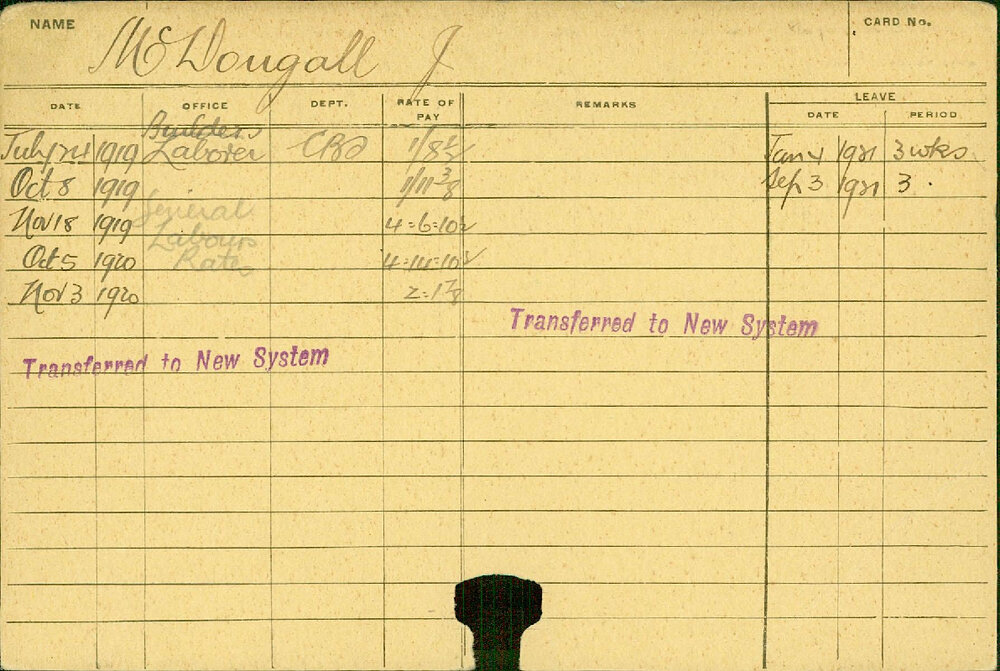 NAME McDougall J CARD No.
DATE OFFICE DEPT. RATE OF PAY REMARKS LEAVE
DATE PERIOD
Builders
July 24 1919 Laborer 1/8½ Jan 4 1921 3 wks
Oct 8 1919 1/11 3/8 Sep 3 1921 3.
General
Nov 18 1919 4=6=10½
Labour
Oct 5 1920 Rates 4=14=10½
Nov 3 1920 2=1 7/8
Transferred to New System
Transferred to New System